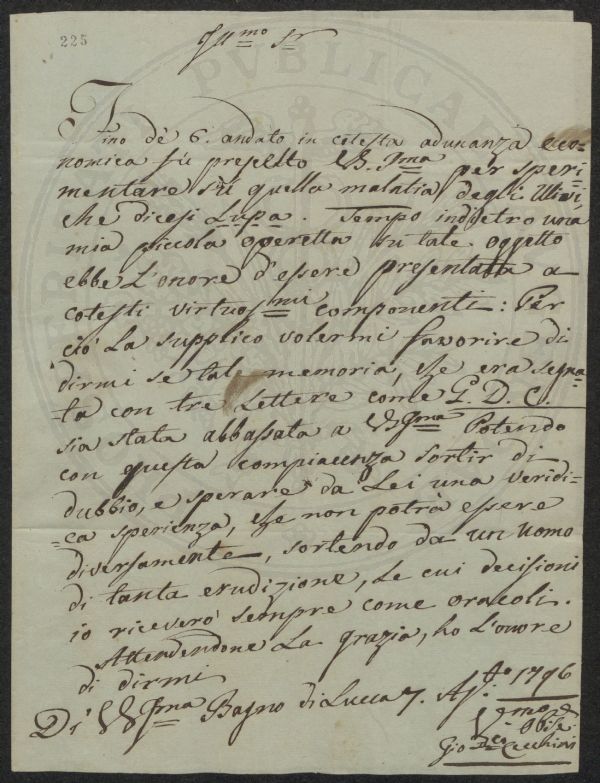 225
Illmo Sr
Fino dè 6. andato in cotesta adunanza eco=
nomica fù prescelto VS. Illma per speri=
mentare sù quella malatia degli Ulivi,
che dicesi Lupa. Tempo indietro una
mia piccola operetta su tale oggetto
ebbe L'onore d'essere presentata a
cotesti virtuosmi componenti: Per
ciò La supplico volermi favorire di
dirmi se tale memoria, che era segna=
ta con tre Lettere come G. D. C.
sia stata abbassata a VS Illma Potendo
con questa compiacenza sortir di
dubbio, e sperare da Lei una veridi=
=ca sperienza, che non potrà essere
diversamente, sortendo da un Uomo
di tanta erudizione, Le cui decisioni
io riceverò sempre come oracoli.
Attendendone La grazia, ho L'onore
di dirmi
Di VS Illma Bagno di Lucca 7. Ag.to 1796
Gio Dco Cecchini
PUBLICA